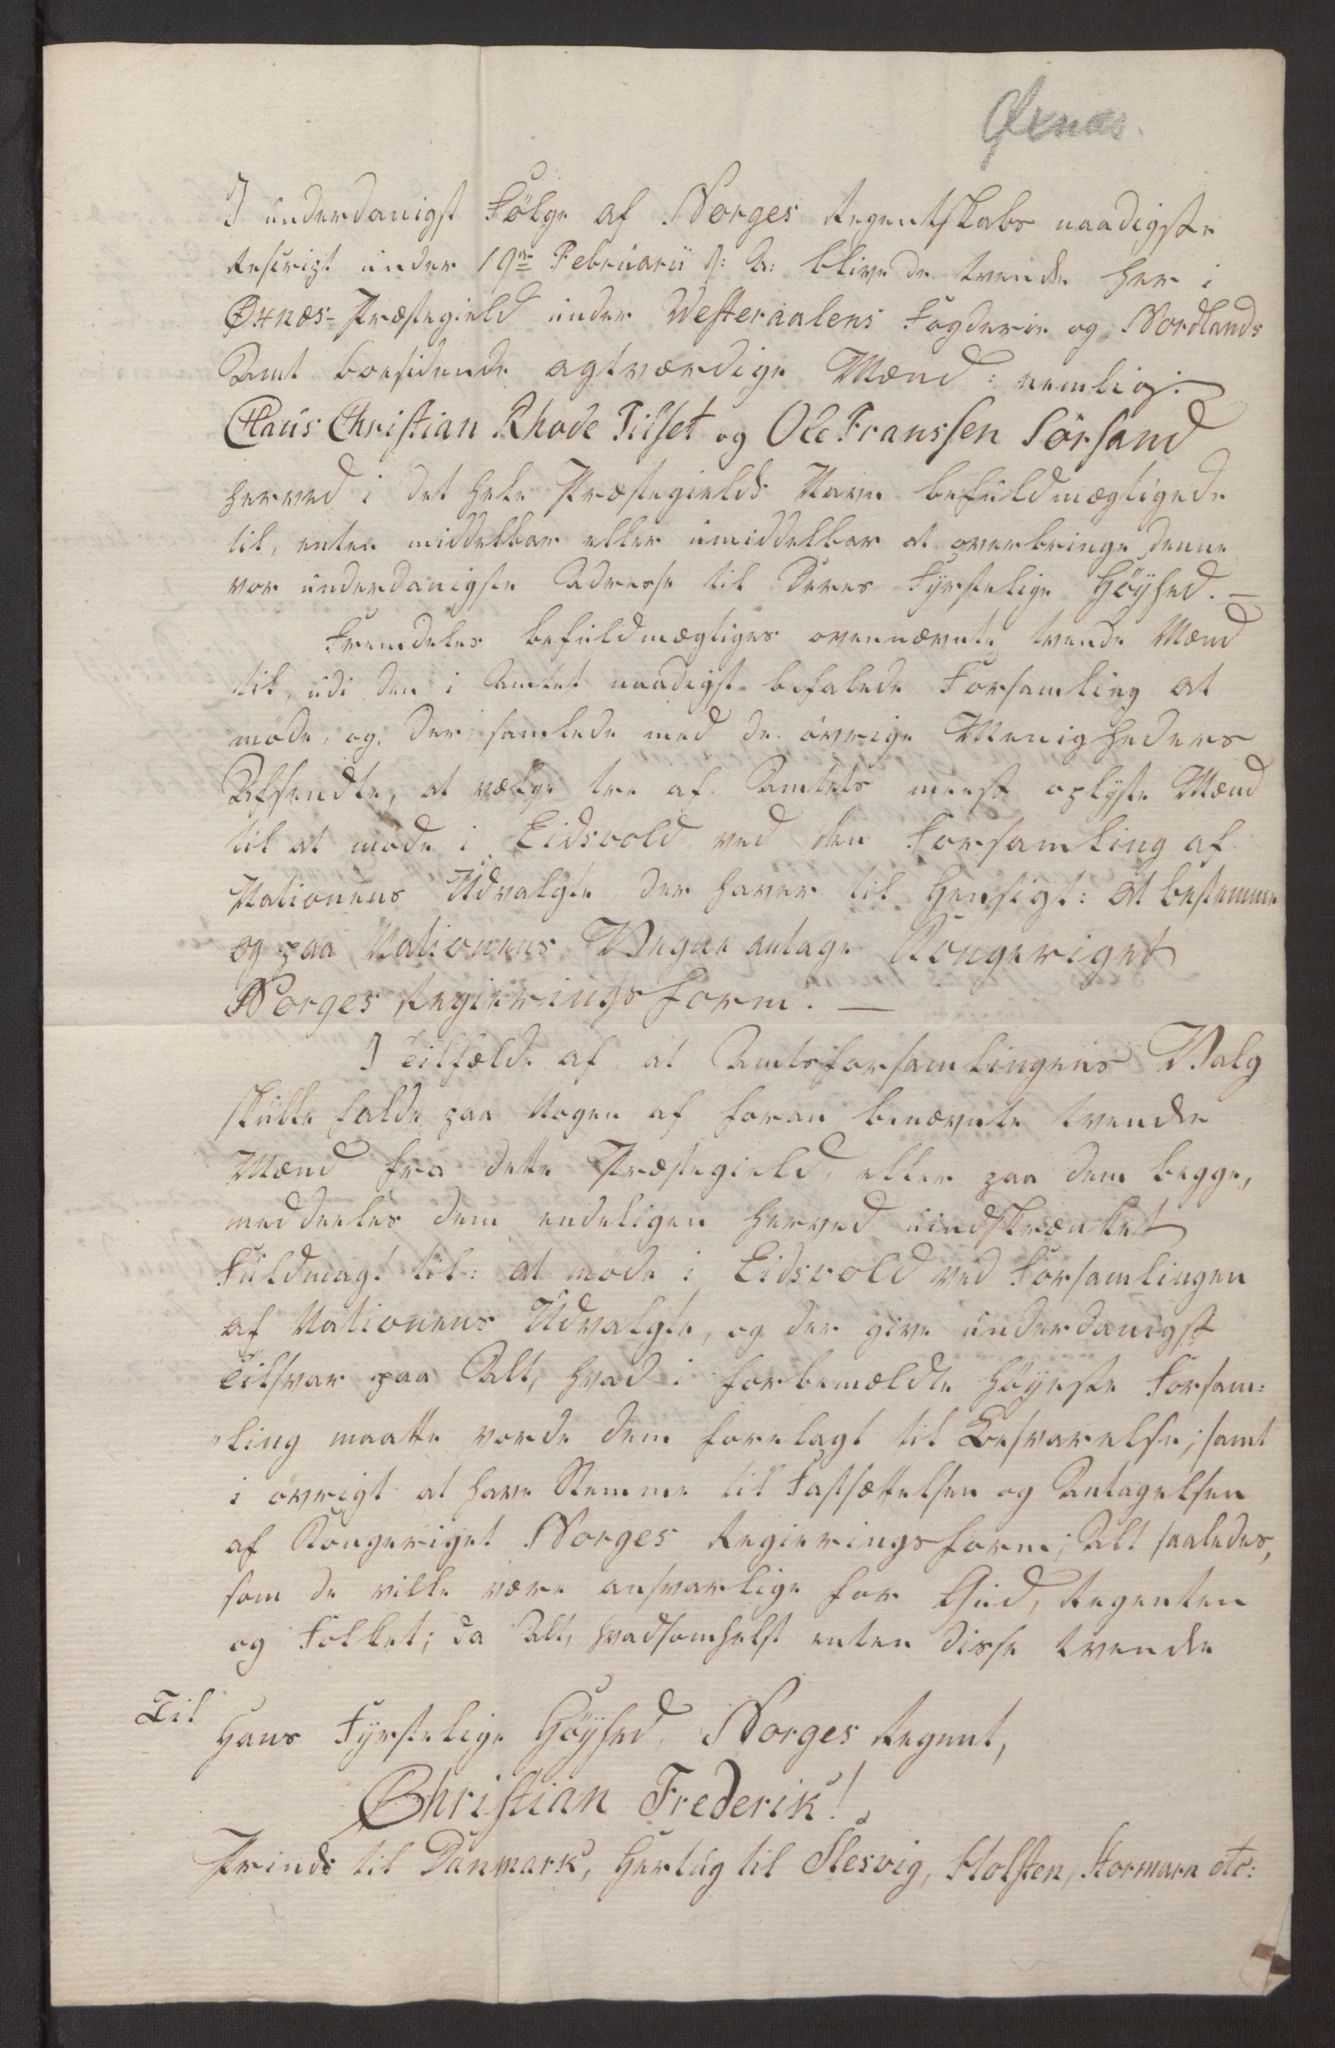 Øxnæs.
I underdanigst Fölge af Norges Regentskabs naadigste
Rescript under 19de Februarii d: A: blive de tvende her i
Øxnæs-Præstegield under Westeraalens Fogderie og Nordlands
Amt boesidende agtværdige Mænd: nemlig:
Claus Christian Rhode Tilset og Ole Franssen Sörsand
herved i det hele Præstegields Navn befuldmægtigede
til, enten middelbar eller umiddelbar at overbringe denne
vor underdanigste Adresse til Deres Fyrstelige Höyhed. —
Fremdeles befuldmægtiges ovennævnte tvende Mænd
til, udi den i Amtet naadigst befalede Forsamling at
möde, og der, samlede med de övrige Menigheders
Afsendte, at vælge tre af Amtets meest oplyste Mænd
til at möde i Eidsvold ved den Forsamling af
Nationens Udvalgte der haver til Hensigt: at bestemme
og paa Nationens Vegne antage Kongeriget
Norges Regieringsform. —
I Tilfælde af, at Amtsforsamlingens Valg
skulle falde paa Nogen af foran benævnte tvende
Mænd fra dette Præstegield, eller paa dem begge,
meddeeles dem endeligen herved uindskrænket
Fuldmagt til: at möde i Eidsvold ved Forsamlingen
af Nationens Udvalgte, og der give underdanigst
Tilsvar paa Alt, hvad i forbemældte höyeste Forsam-
ling maatte vorde dem forelagt til Besvarelse; samt
i övrigt at have Stemme til Fastsættelsen og Antagelsen
af Kongeriget Norges Regieringsform; Alt saaledes,
som de ville være ansvarlige for Gud, Regenten
og Folket; da Alt, hvadsomhelst enten disse tvende
Til
Hans Fyrstelige Höyhed, Norges Regent,
Christian Frederik!
Prinds til Danmark, Hertug til Slesvig, Holsten, Stormarn etc: